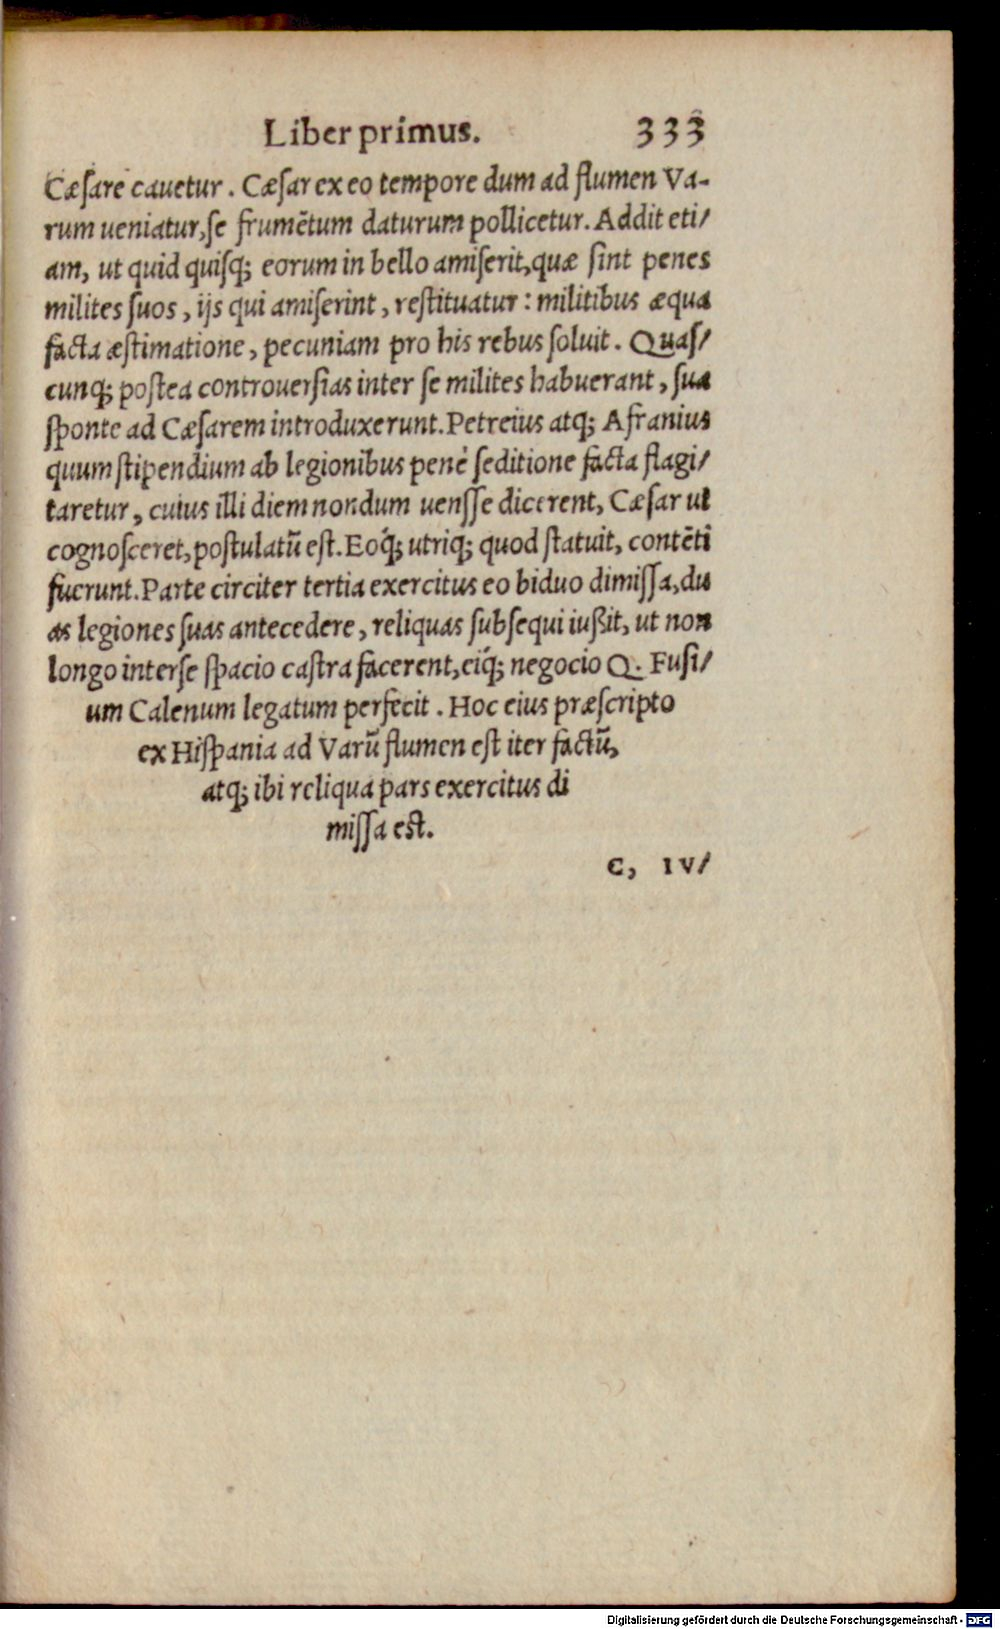 Liber primus. 333
Cæſare cauetur. Cæſar ex eo tempore dum ad flumen Va-
rum ueniatur, ſe frumētum daturum pollicetur. Addit eti/
am, ut quid quiſq; eorum in bello amiſerit, quæ ſint penes
milites ſuos, ijs qui amiſerint, reſtituatur: militibus æqua
facta æſtimatione, pecuniam pro his rebus ſoluit. Quaſ/
cunq; poſtea controuerſias inter ſe milites habuerant, ſua
ſponte ad Cæſarem introduxerunt. Petreius atq; Afranius
quum ſtipendium ab legionibus penè ſeditione facta flagi/
taretur, cuius illi diem nondum uenſſe dicerent, Cæſar ut
cognoſceret, poſtulatū eſt. Eoq́; utriq; quod ſtatuit, contēti
fuerunt. Parte circiter tertia exercitus eo biduo dimiſſa, du
as legiones ſuas antecedere, reliquas ſubſequi iußit, ut non
longo interſe ſpacio caſtra facerent, eiq́; negocio Q. Fuſi/
um Calenum legatum perfecit. Hoc eius præſcripto
ex Hiſpania ad Varū flumen eſt iter factū,
atq; ibi reliqua pars exercitus di
miſſa eſt.
C, IV/
Digitalisierung gefördert durch die Deutsche Forschungsgemeinschaft - DFG